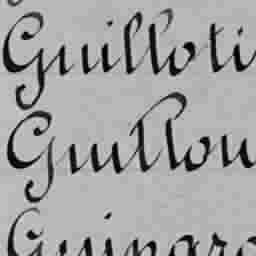 Guilloti
Guillou
Guingro